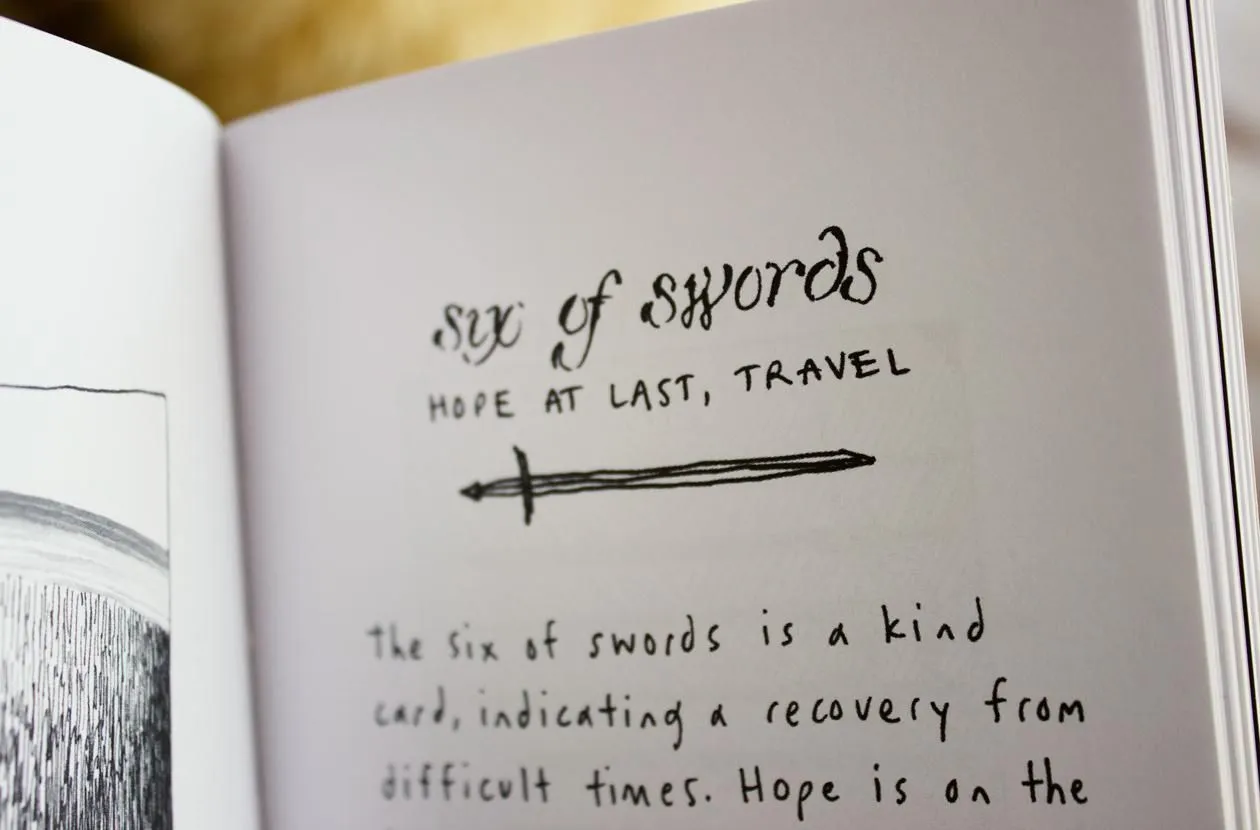 six of swords
HOPE AT LAST, TRAVEL
the six of swords is a kind
card, indicating a recovery from
difficult times. Hope is on the